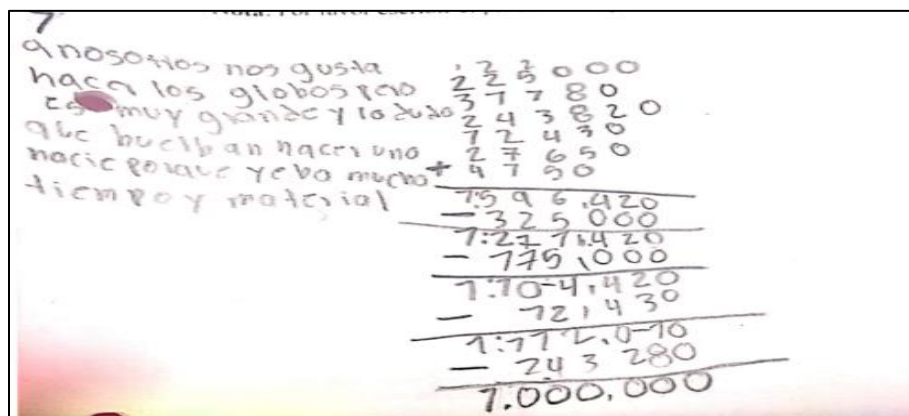 7
a nosotros nos gusta
hacer los globos pero
es muy grande y lo dudo
que buelban hacer uno
porque yeba mucho
tiempo y material
225000
37780
243820
72430
27650
+ 4750
7.596.420
- 325000
7:271.420
- 775,000
7:70-4,420
- 72,430
7:772.0-70
- 243 280
7.000,000